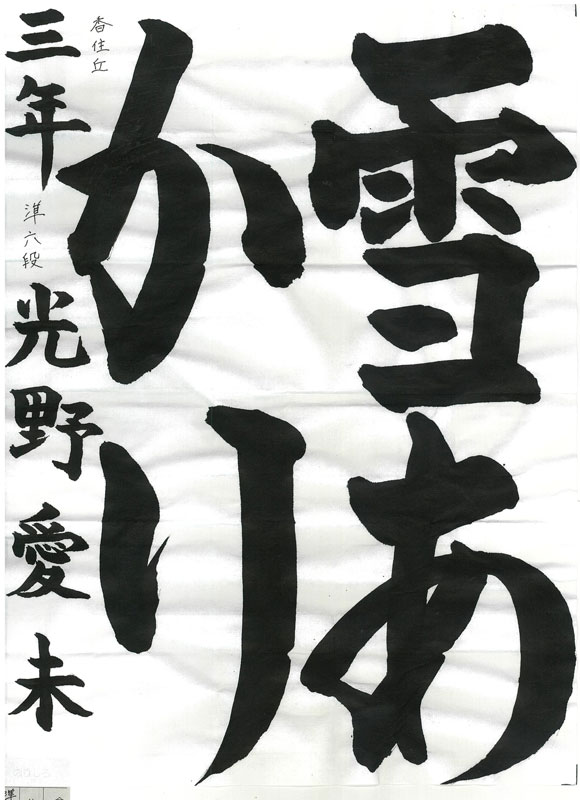 雪あ
かり
香住丘
三年 準六段 光野愛未